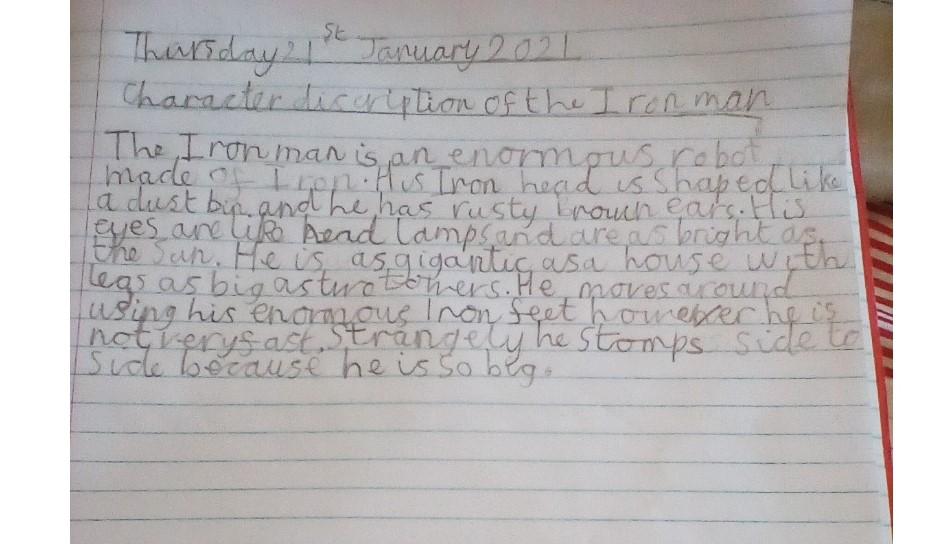 Thursday 21st January 2021
Character discription of the Iron man
The Iron man is an enormous robot
made of Iron. His Iron head is shaped like
a dust bin and he has rusty brown ears. His
eyes are like head lamps and are as bright as
the Sun. He is as gigantic as a house with
legs as big as two towers. He moves around
using his enormous Iron feet however he is
not very fast. Strangely he Stomps side to
side because he is so big.